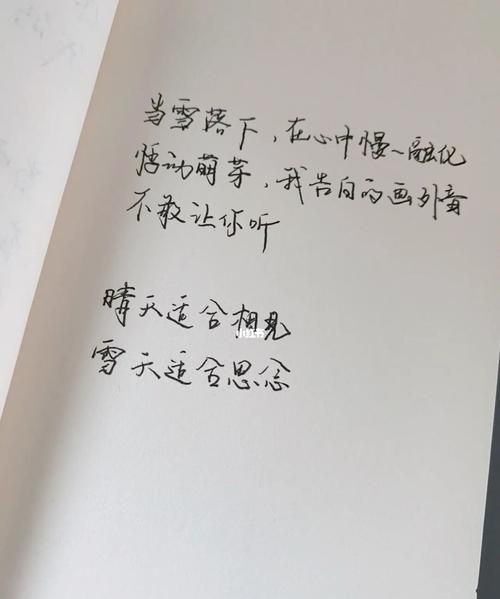 当雪落下,在心中慢一融化
悸动萌芽,我告白的画外音
不敢让你听
晴天适合相见
小红书
雪天适合思念